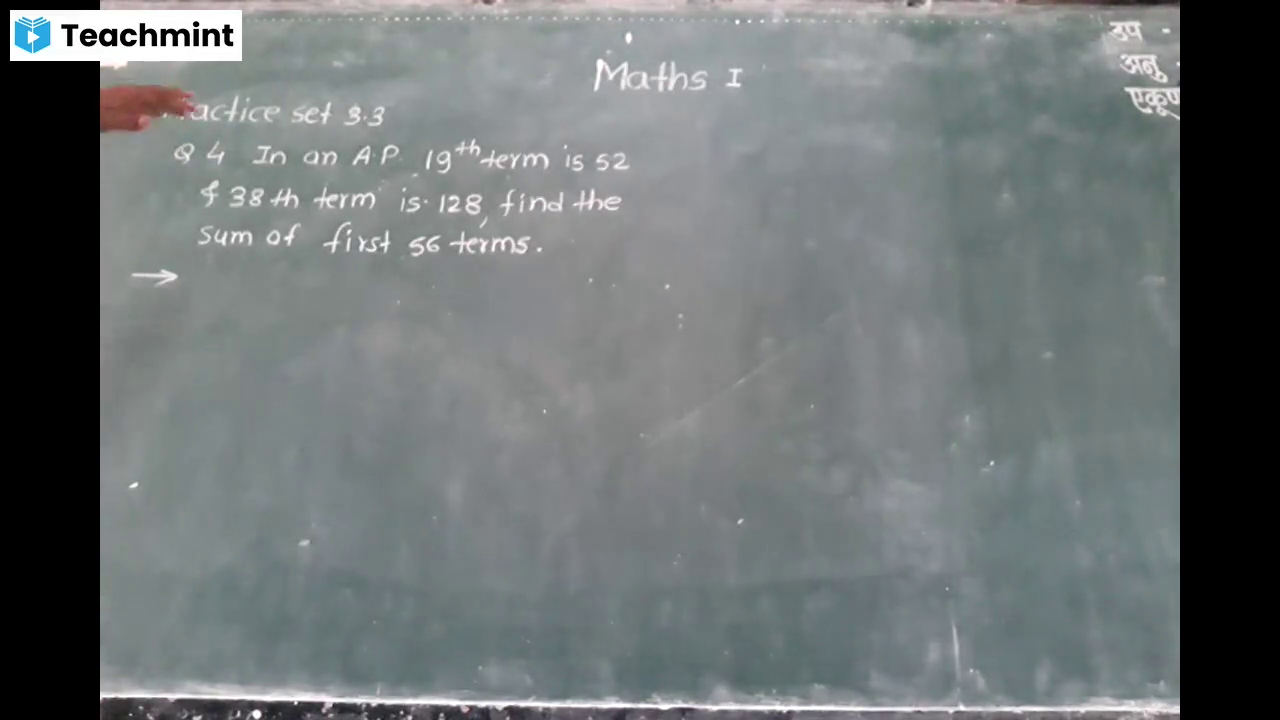 Teachmint
Maths I
उप -
अनु -
एकूण
Practice set 3.3
Q 4 In an A.P. 19th term is 52
& 38th term is 128, find the
sum of first 56 terms.
→